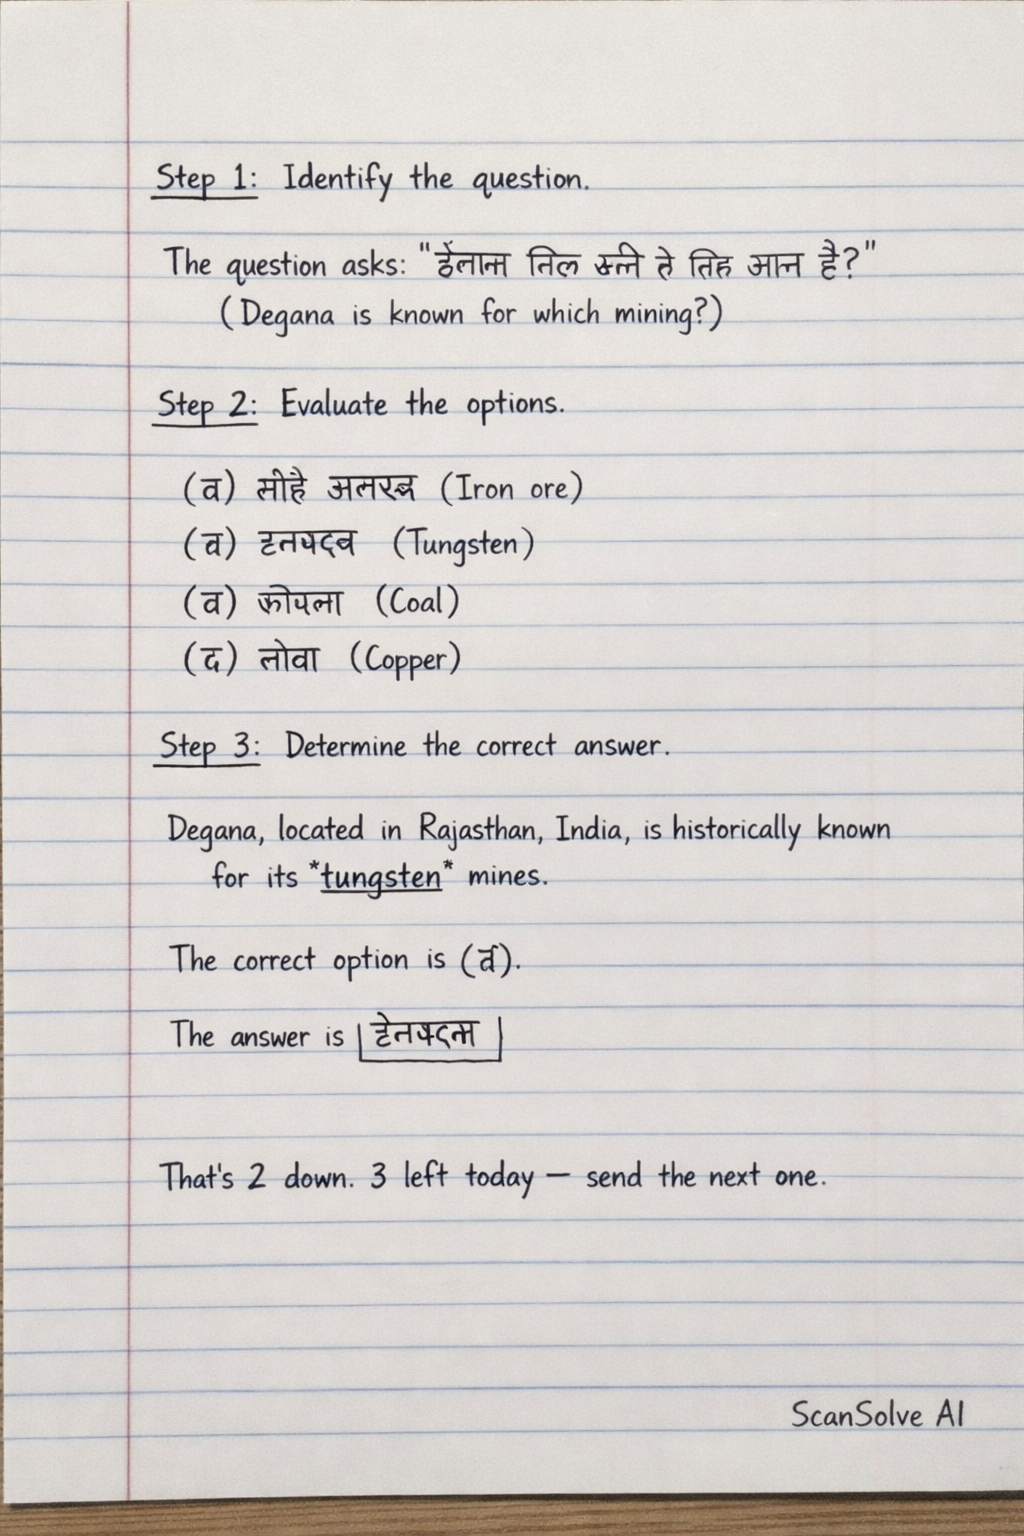 Step 1: Identify the question.
The question asks: "डेलाना तिल है?"
(Degana is known for which mining?)
Step 2: Evaluate the options.
(व) (Iron ore)
(व) (Tungsten)
(व) कोयला (Coal)
(द) तोवा (Copper)
Step 3: Determine the correct answer.
Degana, located in Rajasthan, India, is historically known
for its *tungsten* mines.
The correct option is
The answer is
That's 2 down. 3 left today — send the next one.
ScanSolve AI